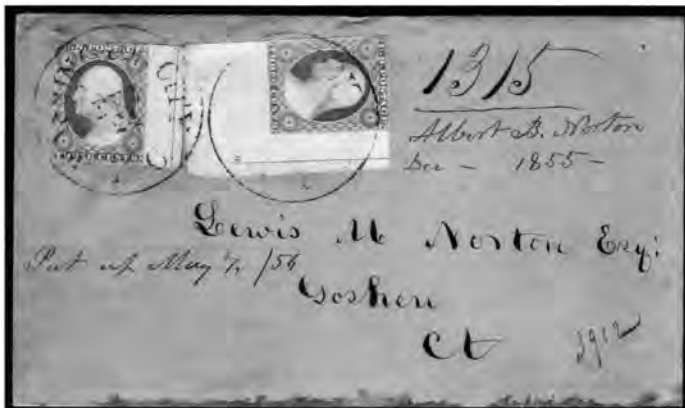 1315
Albert B. Norton
Dec - 1855 -
Lewis M Norton Esq:
Put up May /56
Goshen
Ct
3912